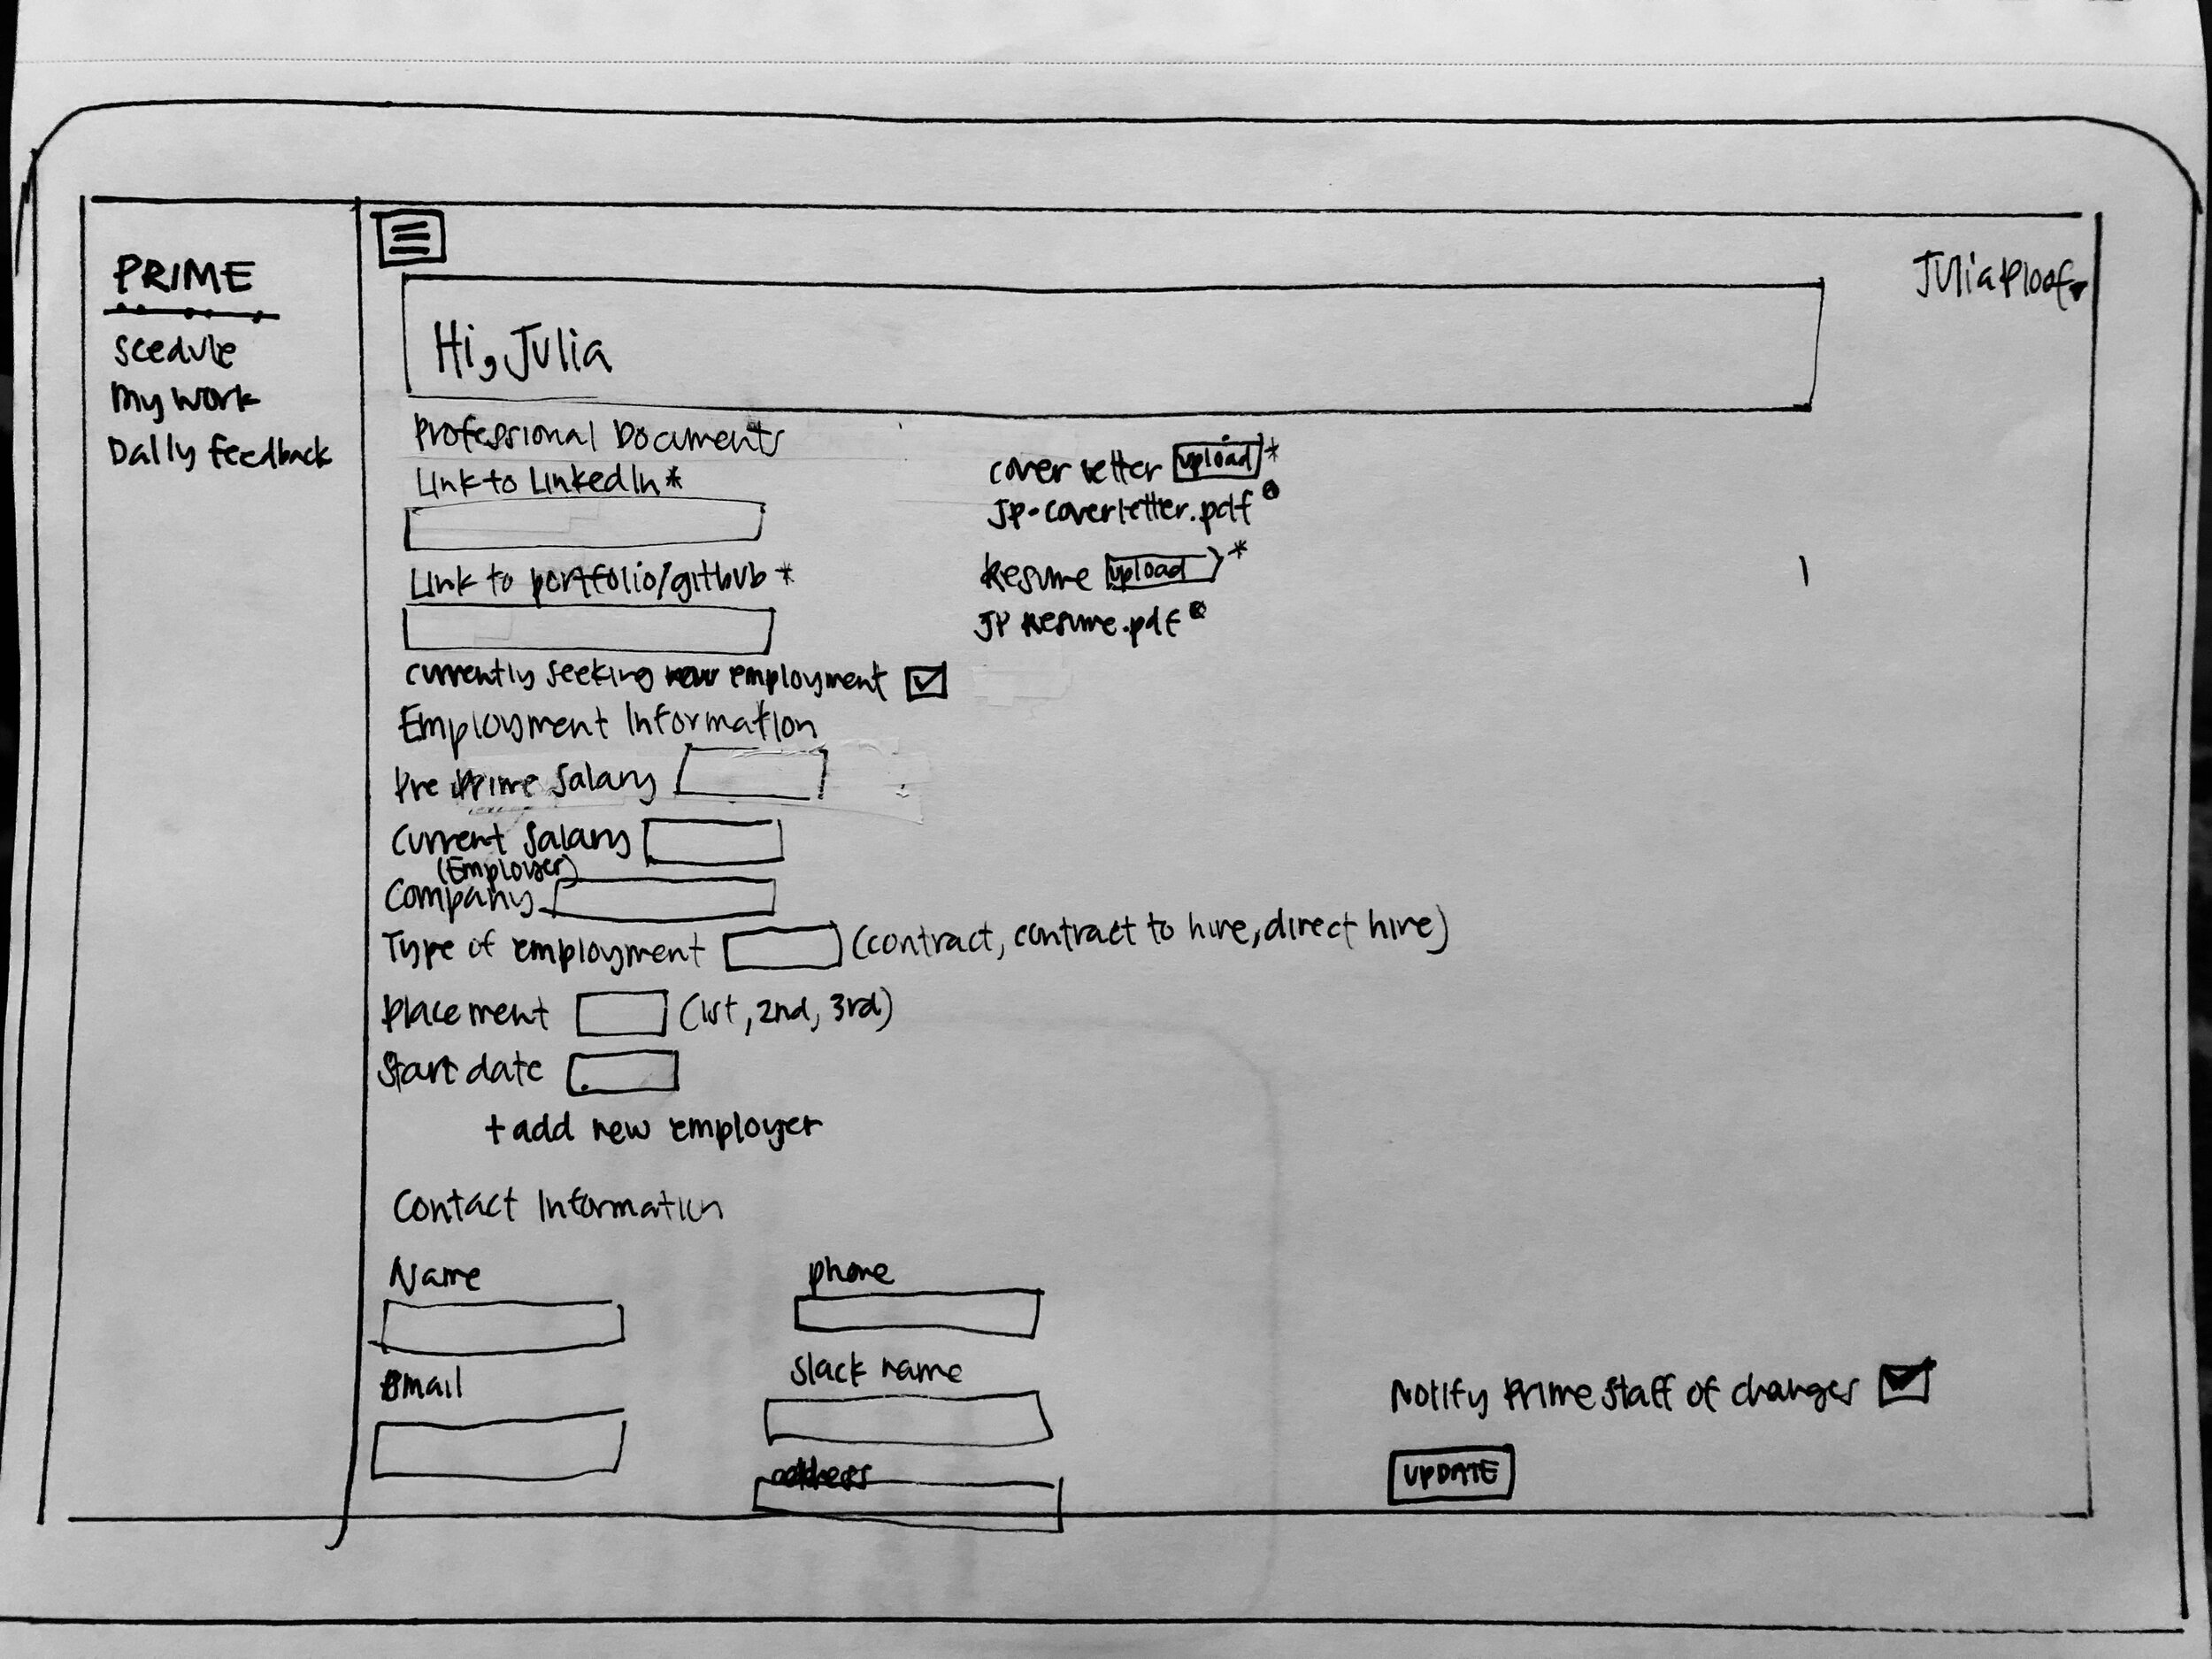 PRIME
Scedule
My work
Daily feedback
Julia Ploof
Hi, Julia
Professional Documents
Link to LinkedIn*
Link to portfolio/github*
cover letter upload*
JP-coverletter.pdf
Resume upload*
JP Resume.pdf
currently seeking employment
Employment Information
Pre Prime Salary
Current Salary
(Employer)
Company
Type of employment (contract, contract to hire, direct hire)
Placement (1st, 2nd, 3rd)
Start date
+ add new employer
Contact Information
Name
phone
Email
Slack name
address
Notify Prime Staff of changes
UPDATE